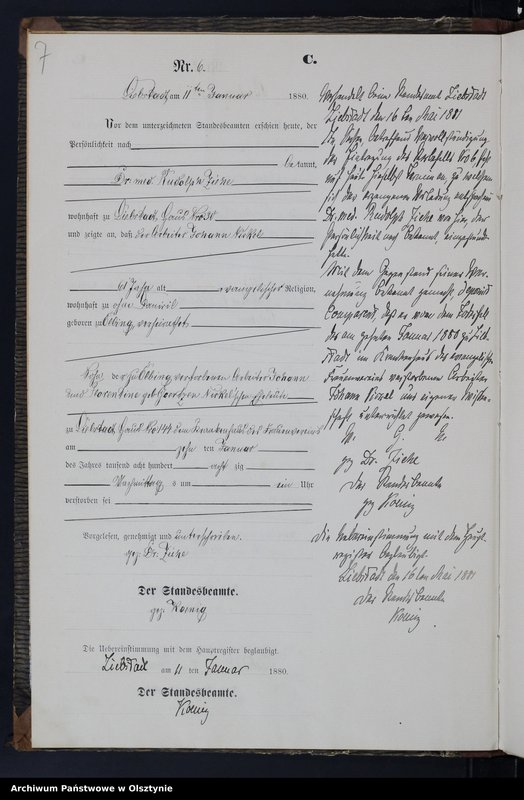 7
Nr. 6.
C.
Liebstadt, am 11ten Januar 1880.
Vor dem unterzeichneten Standesbeamten erschien heute, der
Persönlichkeit nach
bekannt,
Dr. med. Rudolph Zieke
wohnhaft zu Liebstadt, Haus Nro 50
und zeigte an, daß der Arbeiter Johann Nickel
61 Jahre alt, evangelischer Religion,
wohnhaft zu ohne Domizil
geboren zu Elbing, verheirathet
Sohn der zu Elbing verstorbenen Arbeiter Johann
und Florentine geb. Nickel'schen Eheleute
zu Liebstadt, Haus Nro 144 dem Krankenhause des Frauenvereins
am zehn ten Januar
des Jahres tausend acht hundert acht zig
Nachmittag s um ein Uhr
verstorben sei
Vorgelesen, genehmigt und unterschrieben.
gez. Dr. Zieke
Der Standesbeamte.
gez. Koenig
Die Uebereinstimmung mit dem Hauptregister beglaubigt.
Liebstadt am 11 ten Januar 1880.
Der Standesbeamte.
Koenig
Verhandelt beim Standesamt Liebstadt
Liebstadt den 16ten Mai 1881
In Sachen betreffend Vervollständigung
der Eintragung des Sterbefalls No 6
Dr. med. Rudolph Zieke
Persönlichkeit nach bekannt, eingefunden
hatte.
Mit dem Gegenstand seiner Ver-
nehmung bekannt gemacht, deponirt
Comparent, daß er von dem Sterbefall
des am zehnten Januar 1880 zu Lieb-
stadt im Krankenhaus des evangelischen
Frauenvereins verstorbenen Arbeiters
Johann Nickel aus eigener Wissen-
schaft unterrichtet gewesen.
V. G. U.
gez. Dr. Zieke
Der Standesbeamte
gez. Koenig
Die Uebereinstimmung mit dem Haupt-
register beglaubigt.
Liebstadt den 16ten Mai 1881
Der Standesbeamte
Koenig
Archiwum Państwowe w Olsztynie